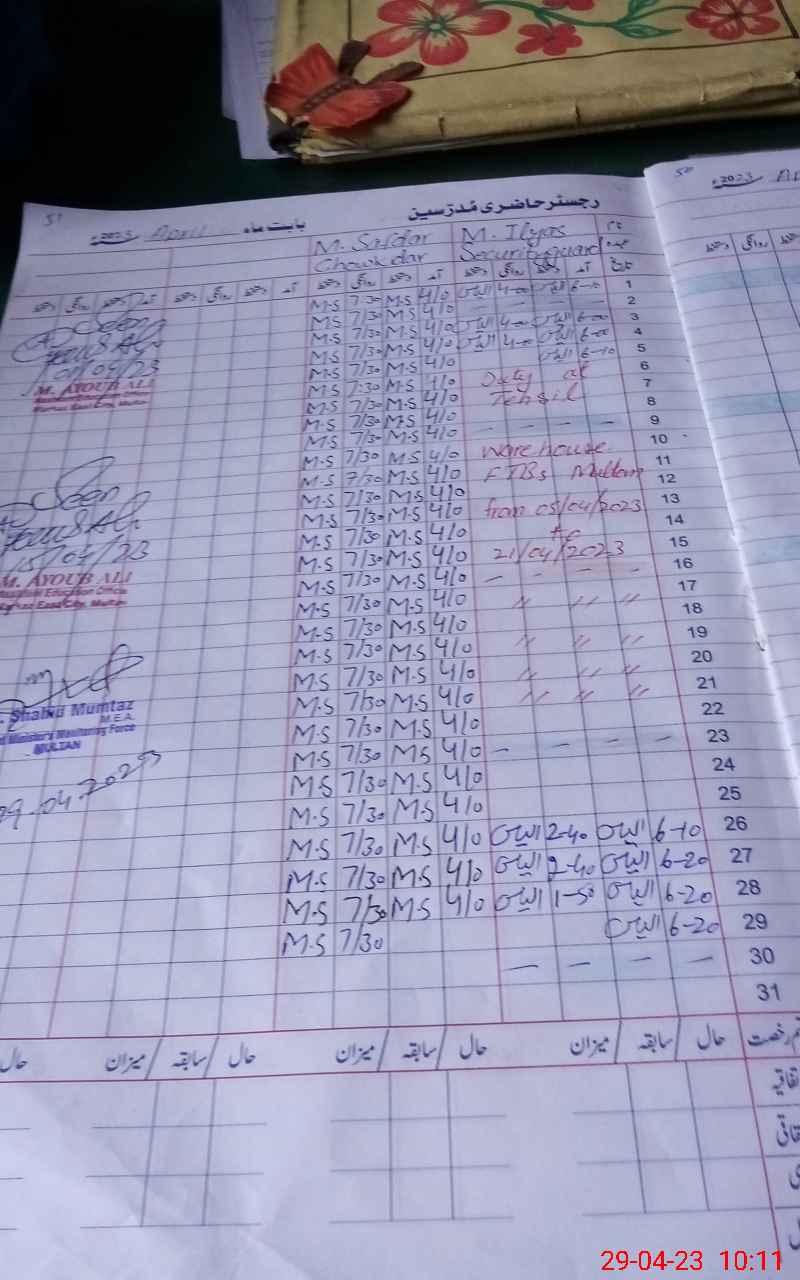 50
2023
51
2023 April بابت ماہ رجسٹر حاضری مُدرّسین
M. Safdar M. Ilyas نام
Chowkdar Security guard عہدہ
تاریخ
M-S 7/30 M-S 4/0 الیاس 4-00 الیاس 6-10 1
M-S 7/30 M-S 4/0 — — — — 2
M-S 7/30 M-S 4/0 الیاس 4-00 الیاس 6-00 3
M-S 7/30 M-S 4/0 الیاس 4-00 الیاس 6-00 4
M-S 7/30 M-S 4/0 الیاس 6-10 5
M-S 7/30 M-S 4/0 Duty at 6
M-S 7/30 M-S 4/0 Tehsil 7
M-S 7/30 M-S 4/0 8
M-S 7/30 M-S 4/0 — — — — 9
M-S 7/30 M-S 4/0 ware house 10
M-S 7/30 M-S 4/0 FTBs Multan 11
M-S 7/30 M-S 4/0 12
M-S 7/30 M-S 4/0 from 05/04/2023 13
M-S 7/30 M-S 4/0 to 14
M-S 7/30 M-S 4/0 21/04/2023 15
M-S 7/30 M-S 4/0 — — — — 16
M-S 7/30 M-S 4/0 〃 〃 〃 17
M-S 7/30 M-S 4/0 18
M-S 7/30 M-S 4/0 〃 〃 〃 19
M-S 7/30 M-S 4/0 〃 〃 〃 20
M-S 7/30 M-S 4/0 〃 〃 〃 21
M-S 7/30 M-S 4/0 22
M-S 7/30 M-S 4/0 — — — — 23
M-S 7/30 M-S 4/0 24
M-S 7/30 M-S 4/0 25
M-S 7/30 M-S 4/0 الیاس 2-40 الیاس 6-10 26
M-S 7/30 M-S 4/0 الیاس 2-40 الیاس 6-20 27
M-S 7/30 M-S 4/0 الیاس 1-50 الیاس 6-20 28
M-S 7/30 الیاس 6-20 29
— — — — 30
31
Seen
M. AYOUB ALI
Seen
15/04/23
M. AYOUB ALI
Assistant Education Officer
Markaz East City, Multan
Shahid Mumtaz
M.E.A.
Chief Minister's Monitoring Force
MULTAN
29.04.2023
رخصت حال سابقہ میزان حال سابقہ میزان حال سابقہ میزان حال
29-04-23 10:11